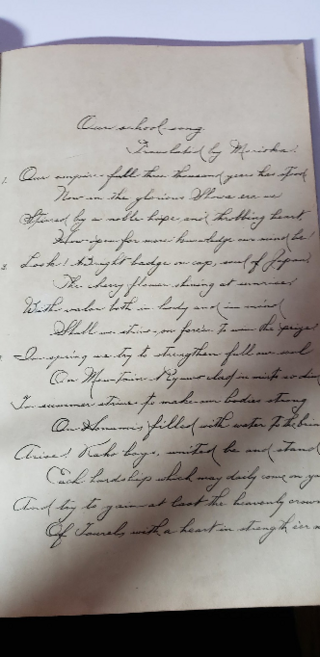 Our school-song.
Translated by Morioka.
1. Our empire full three thousand years has stood
Now in the glorious Showa era we
Stirred by a noble hope, and throbbing heart
How open for more knowledge our mind be!
2. Look! A bright badge on cap, soul of Japan!
The cherry flower shining at sunrise!
With valour both in body and in mind
Shall we strive on forever to win the prize!
In spring we try to strengthen full our soul
On Mountain clad in mists
In summer strive to make our bodies strong
On filled with water to the brim
Arise! boys, united be and stand
Each hardship which may daily come on
And try to gain at last the heavenly crown
Of laurels with a heart in strength